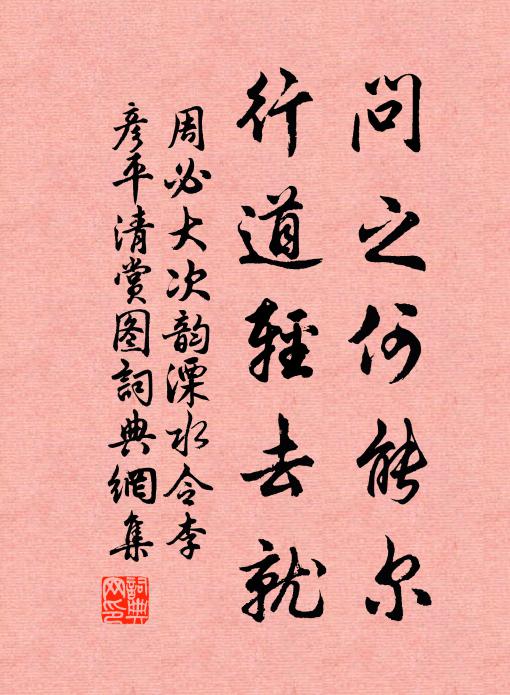 问之何能尔
行道輕去就
周必大次韵溧水令李
彦平清赏图詞典網集
詞典
网印